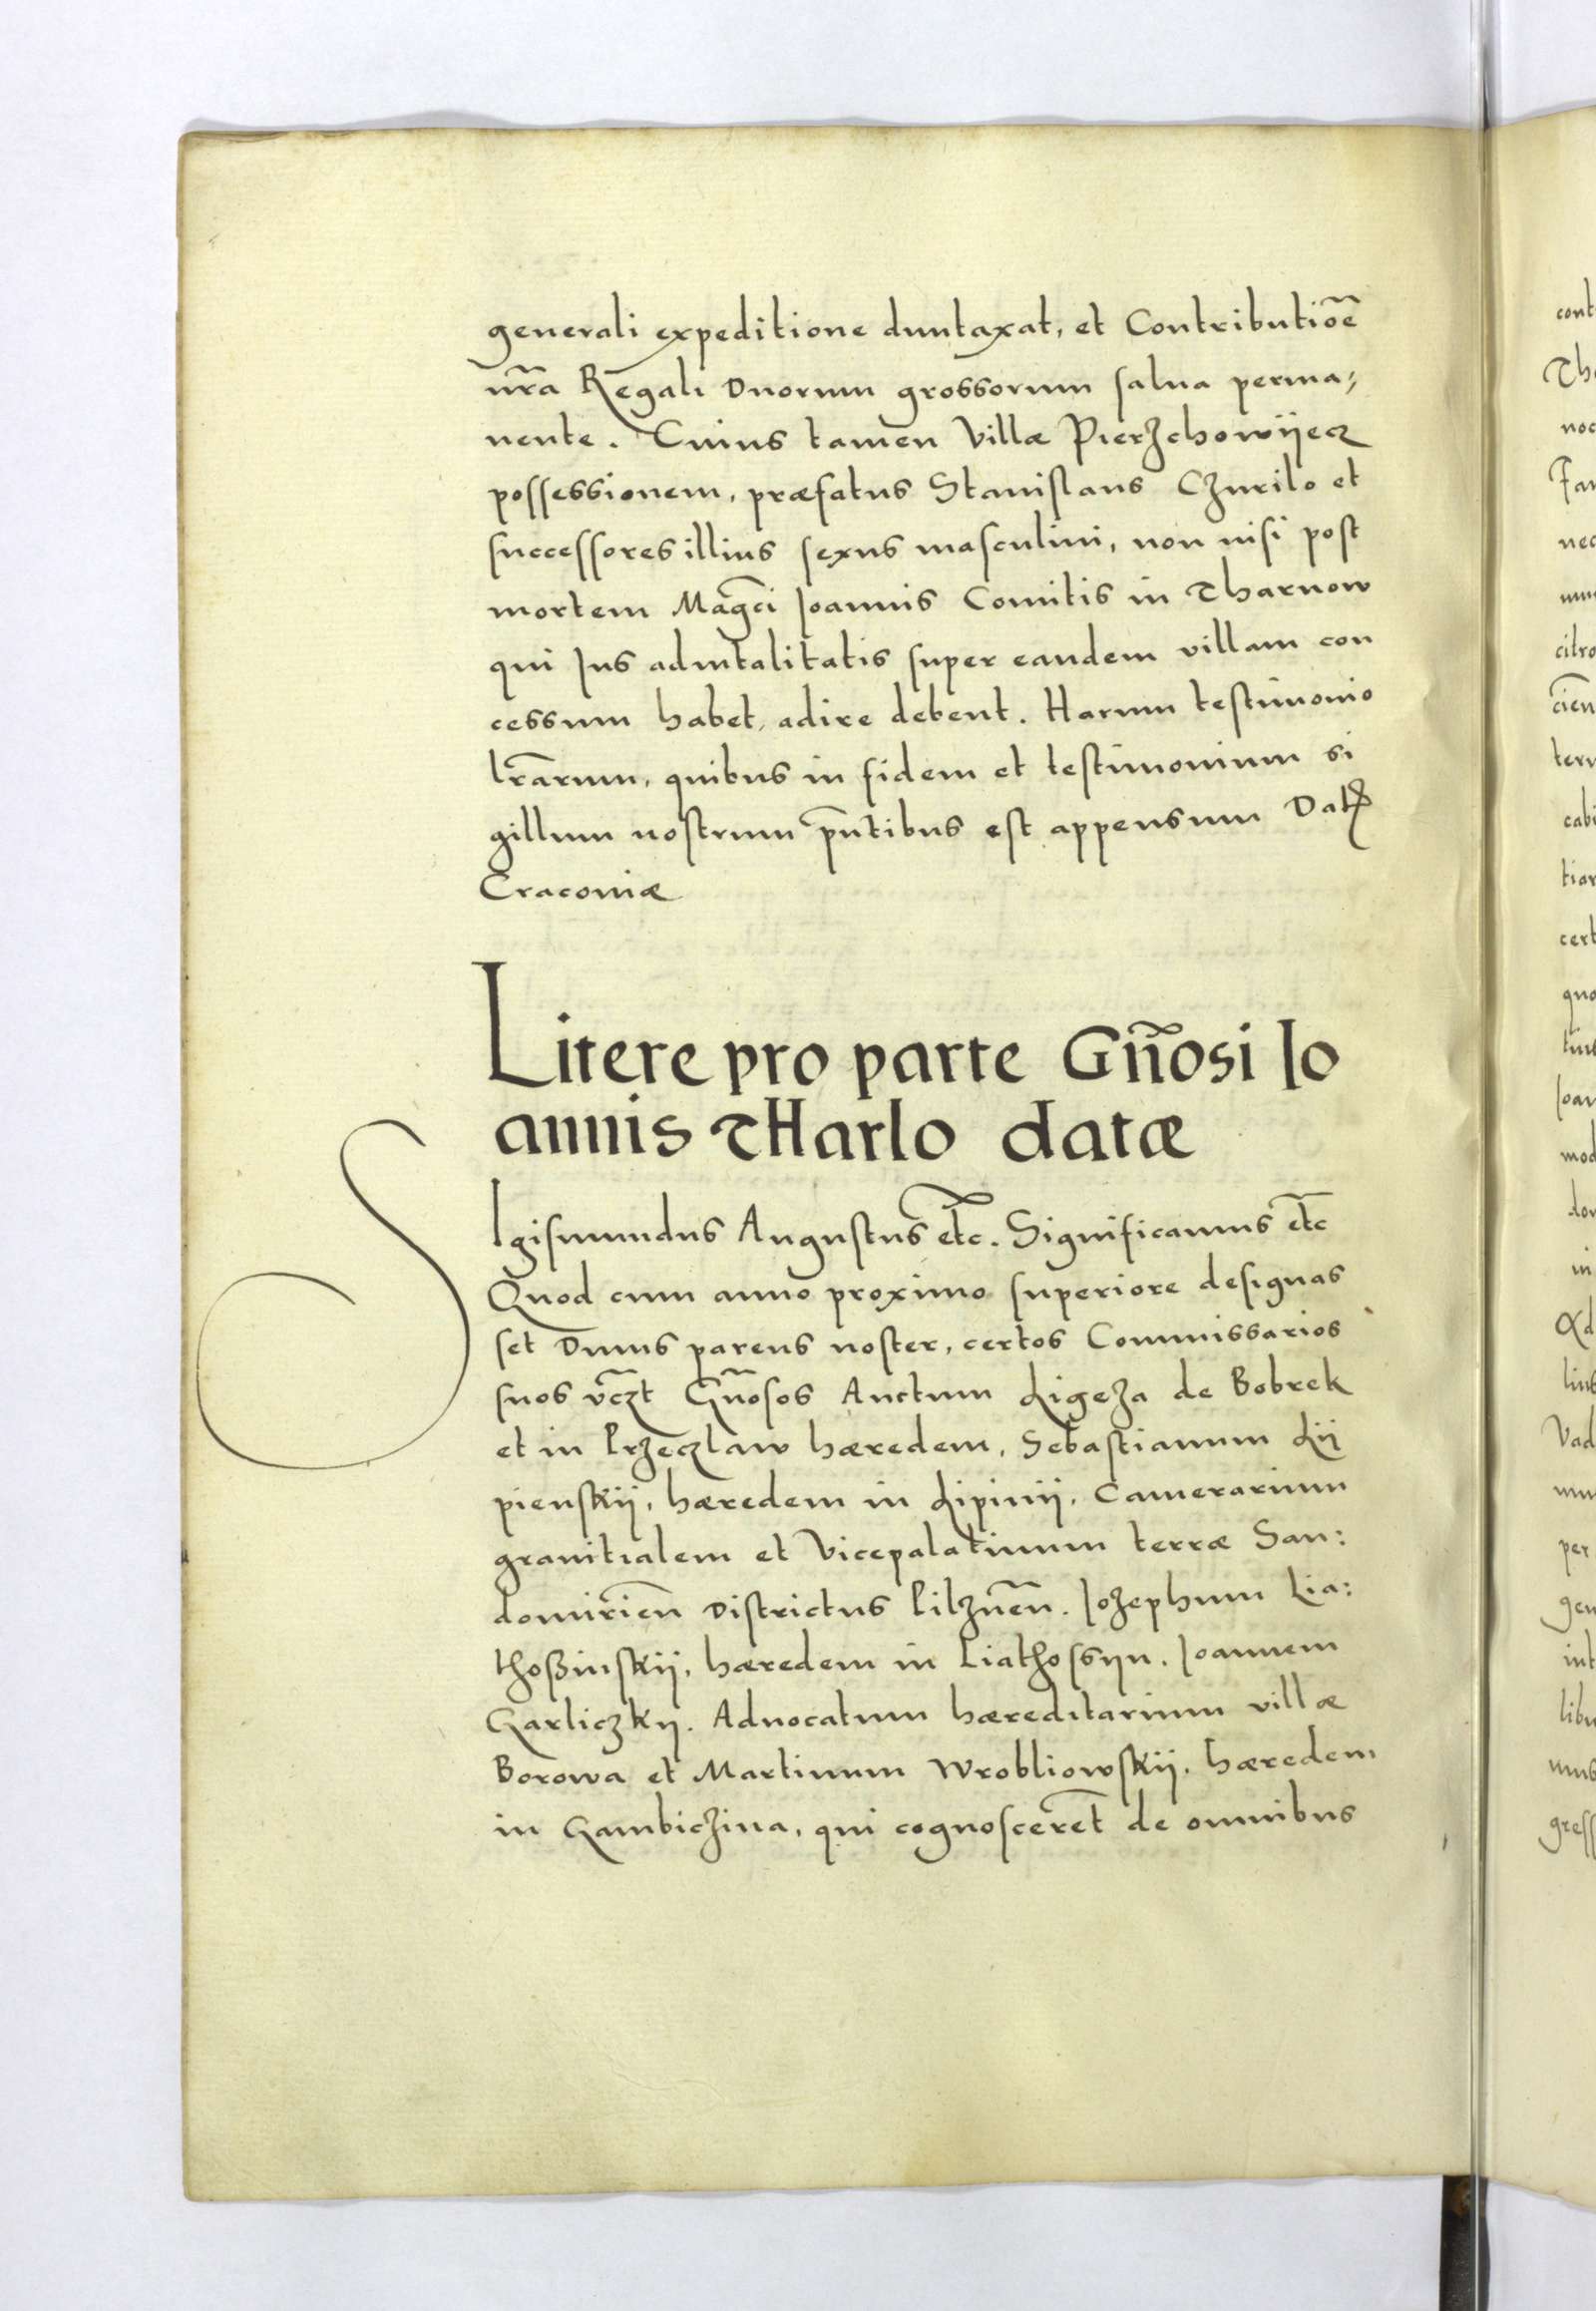 generali expeditione duntaxat, et Contributiõe
nr̃a Regali duorum grossorum salua perma⸗
nente. Cuius tamen Villæ Pierzchowÿecz
possessionem, præfatus Stanislaus Czurilo et
successores illius sexus masculini, non nisi post
mortem Magc̃i Ioannis Comitis in Tharnow
qui Ius aduitalitatis super eandem villam con
cessum habet, adire debent. Harum testimonio
lr̃arum, quibus in fidem et testimonium si
gillum nostrum pñtibus est appensum Datʒ
Cracouiæ
Litere pro parte Gñosi Io
annis THarlo datæ
SIgismundus Augustus etc̃. Significamus etc̃
Quod cum anno proximo superiore designas
set Diuus parens noster, certos Commissarios
suos vc̃zt Gñosos Anctum Ligeza de Bobrek
et in Przeczlaw hæredem, Sebastianum Lÿ
pienskÿ, hæredem in Lipinÿ, Camerarium
granitialem et Vicepalatinum terræ San:
domirien̄ Districtus Pilznen̄. Iozephum Lia:
thoßinskÿ, hæredem in Liathossÿn. Ioannem
Garliczkÿ. Aduocatum hæreditarium villæ
Borowa et Martinum Wrobliowskÿ, hæredem
in Gambiczina, qui cognoscerẽt de omnibus